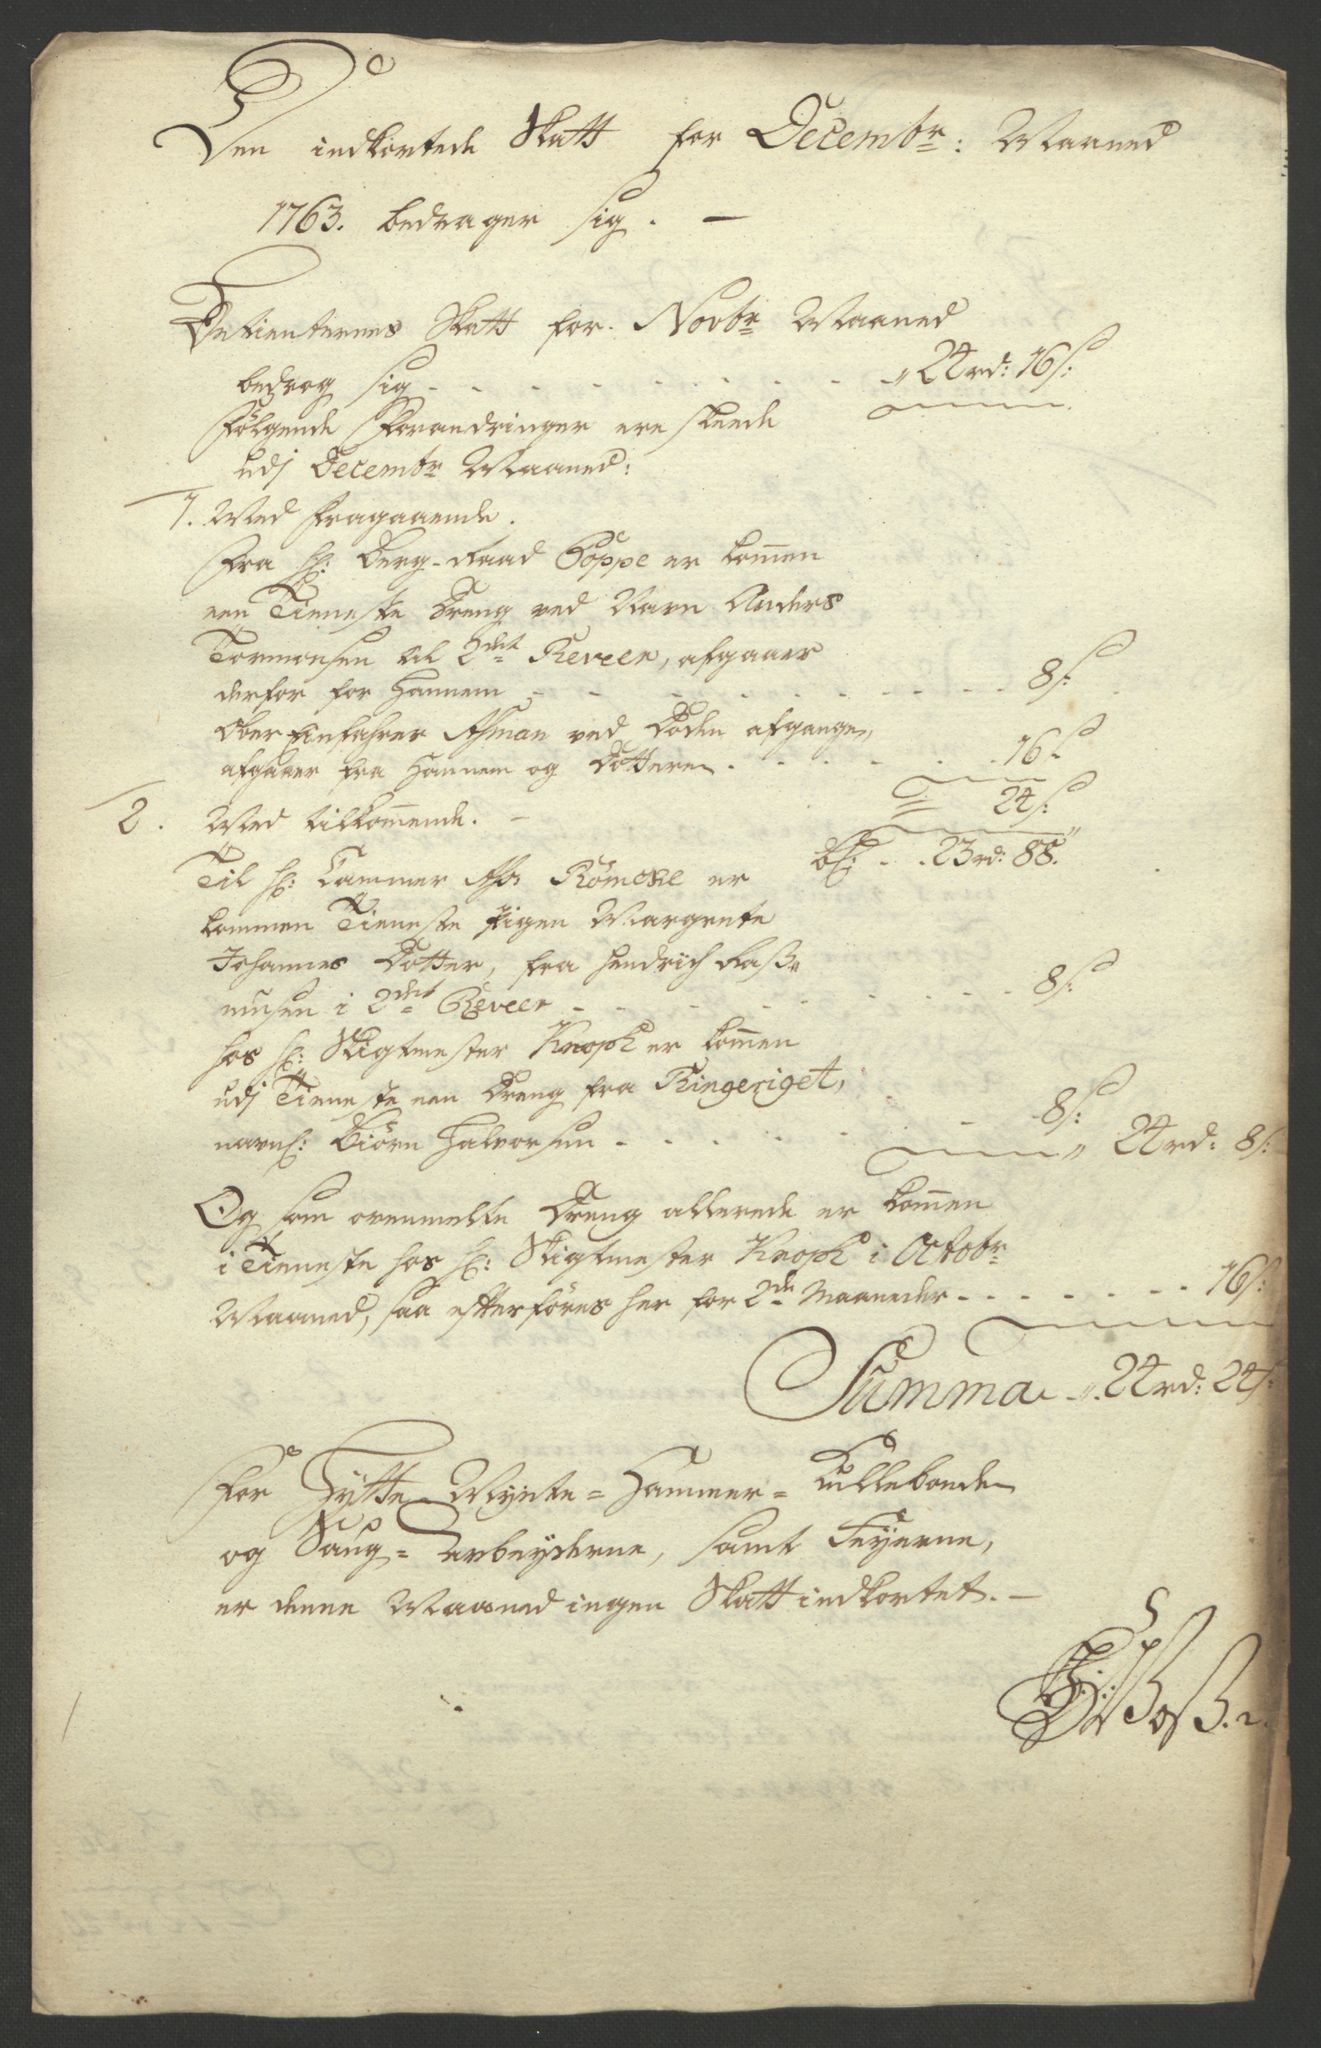 Den indkortede Skatt for Decembr: Maaned
1763. bedrager sig. —
Betienternes Skatt for Novbr Maaned
bedrog sig - - - - - - - - „ 24 rd: 16 s:
Følgende Forandringer ere skeede
udj Decembr Maaned:
1. Med fragaaende.
Fra Hr: Berg-Raad Poppe er kommen
een Tieneste Dreng ved Navn Anders
Tormonsen til 2det Reveer, afgaaer
derfor for Hannem - - - - - - - - 8 s:
Ober Einfahrer Asman ved Døden afgangen,
afgaaer fra Hannem og Dotteren - - - - - 16 s
24 s:
2. Med tilkommende. —
bl: - - 23 rd: 88.
Til Hr: Cammer Ass: Römcke er
kommen Tieneste Pigen Margrete
Johannes Dotter, fra Hendrich Rass-
musen i 2det Reveer - - - - - - - - 8 s:
Hos Hr: Stigtmester Knoph er kommen
udj Tieneste een Dreng fra Ringeriget,
navnl: Biørn Halvorsen - - - - - - - 8 s:
„ 24 rd: 8 s:
Og som ovenmelte Dreng allerede er kommen
i Tieneste hos Hr: Stigtmester Knoph i Octobr
Maaned, saa efterføres her for 2de Maaneder - - - - - - 16 s:
Summa - „ 24 rd: 24 s:
For Hytte- Mynte- Hammer- Kullebonde
og Saug- Arbeyderne, samt Feyerne,
er denne Maaned ingen Skatt indkortet. —